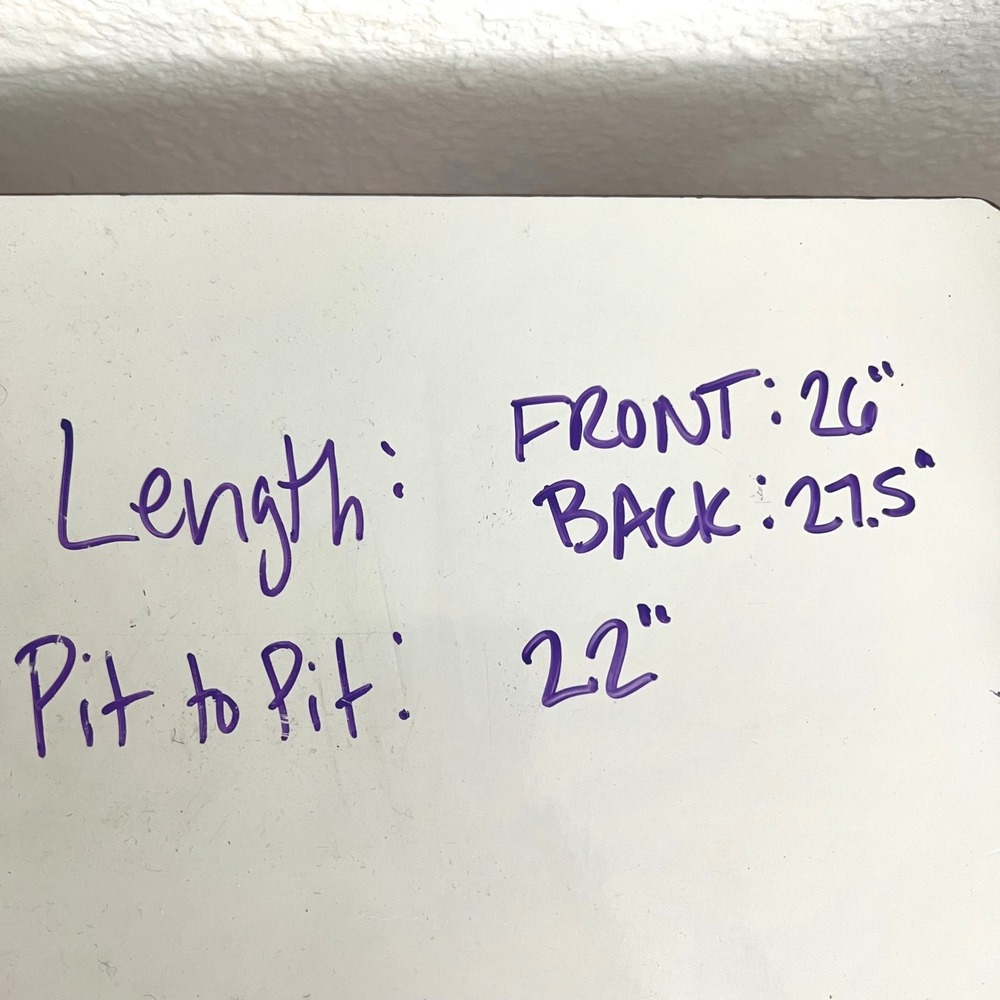 Length: FRONT: 26"
BACK: 27.5"
Pit to Pit: 22"